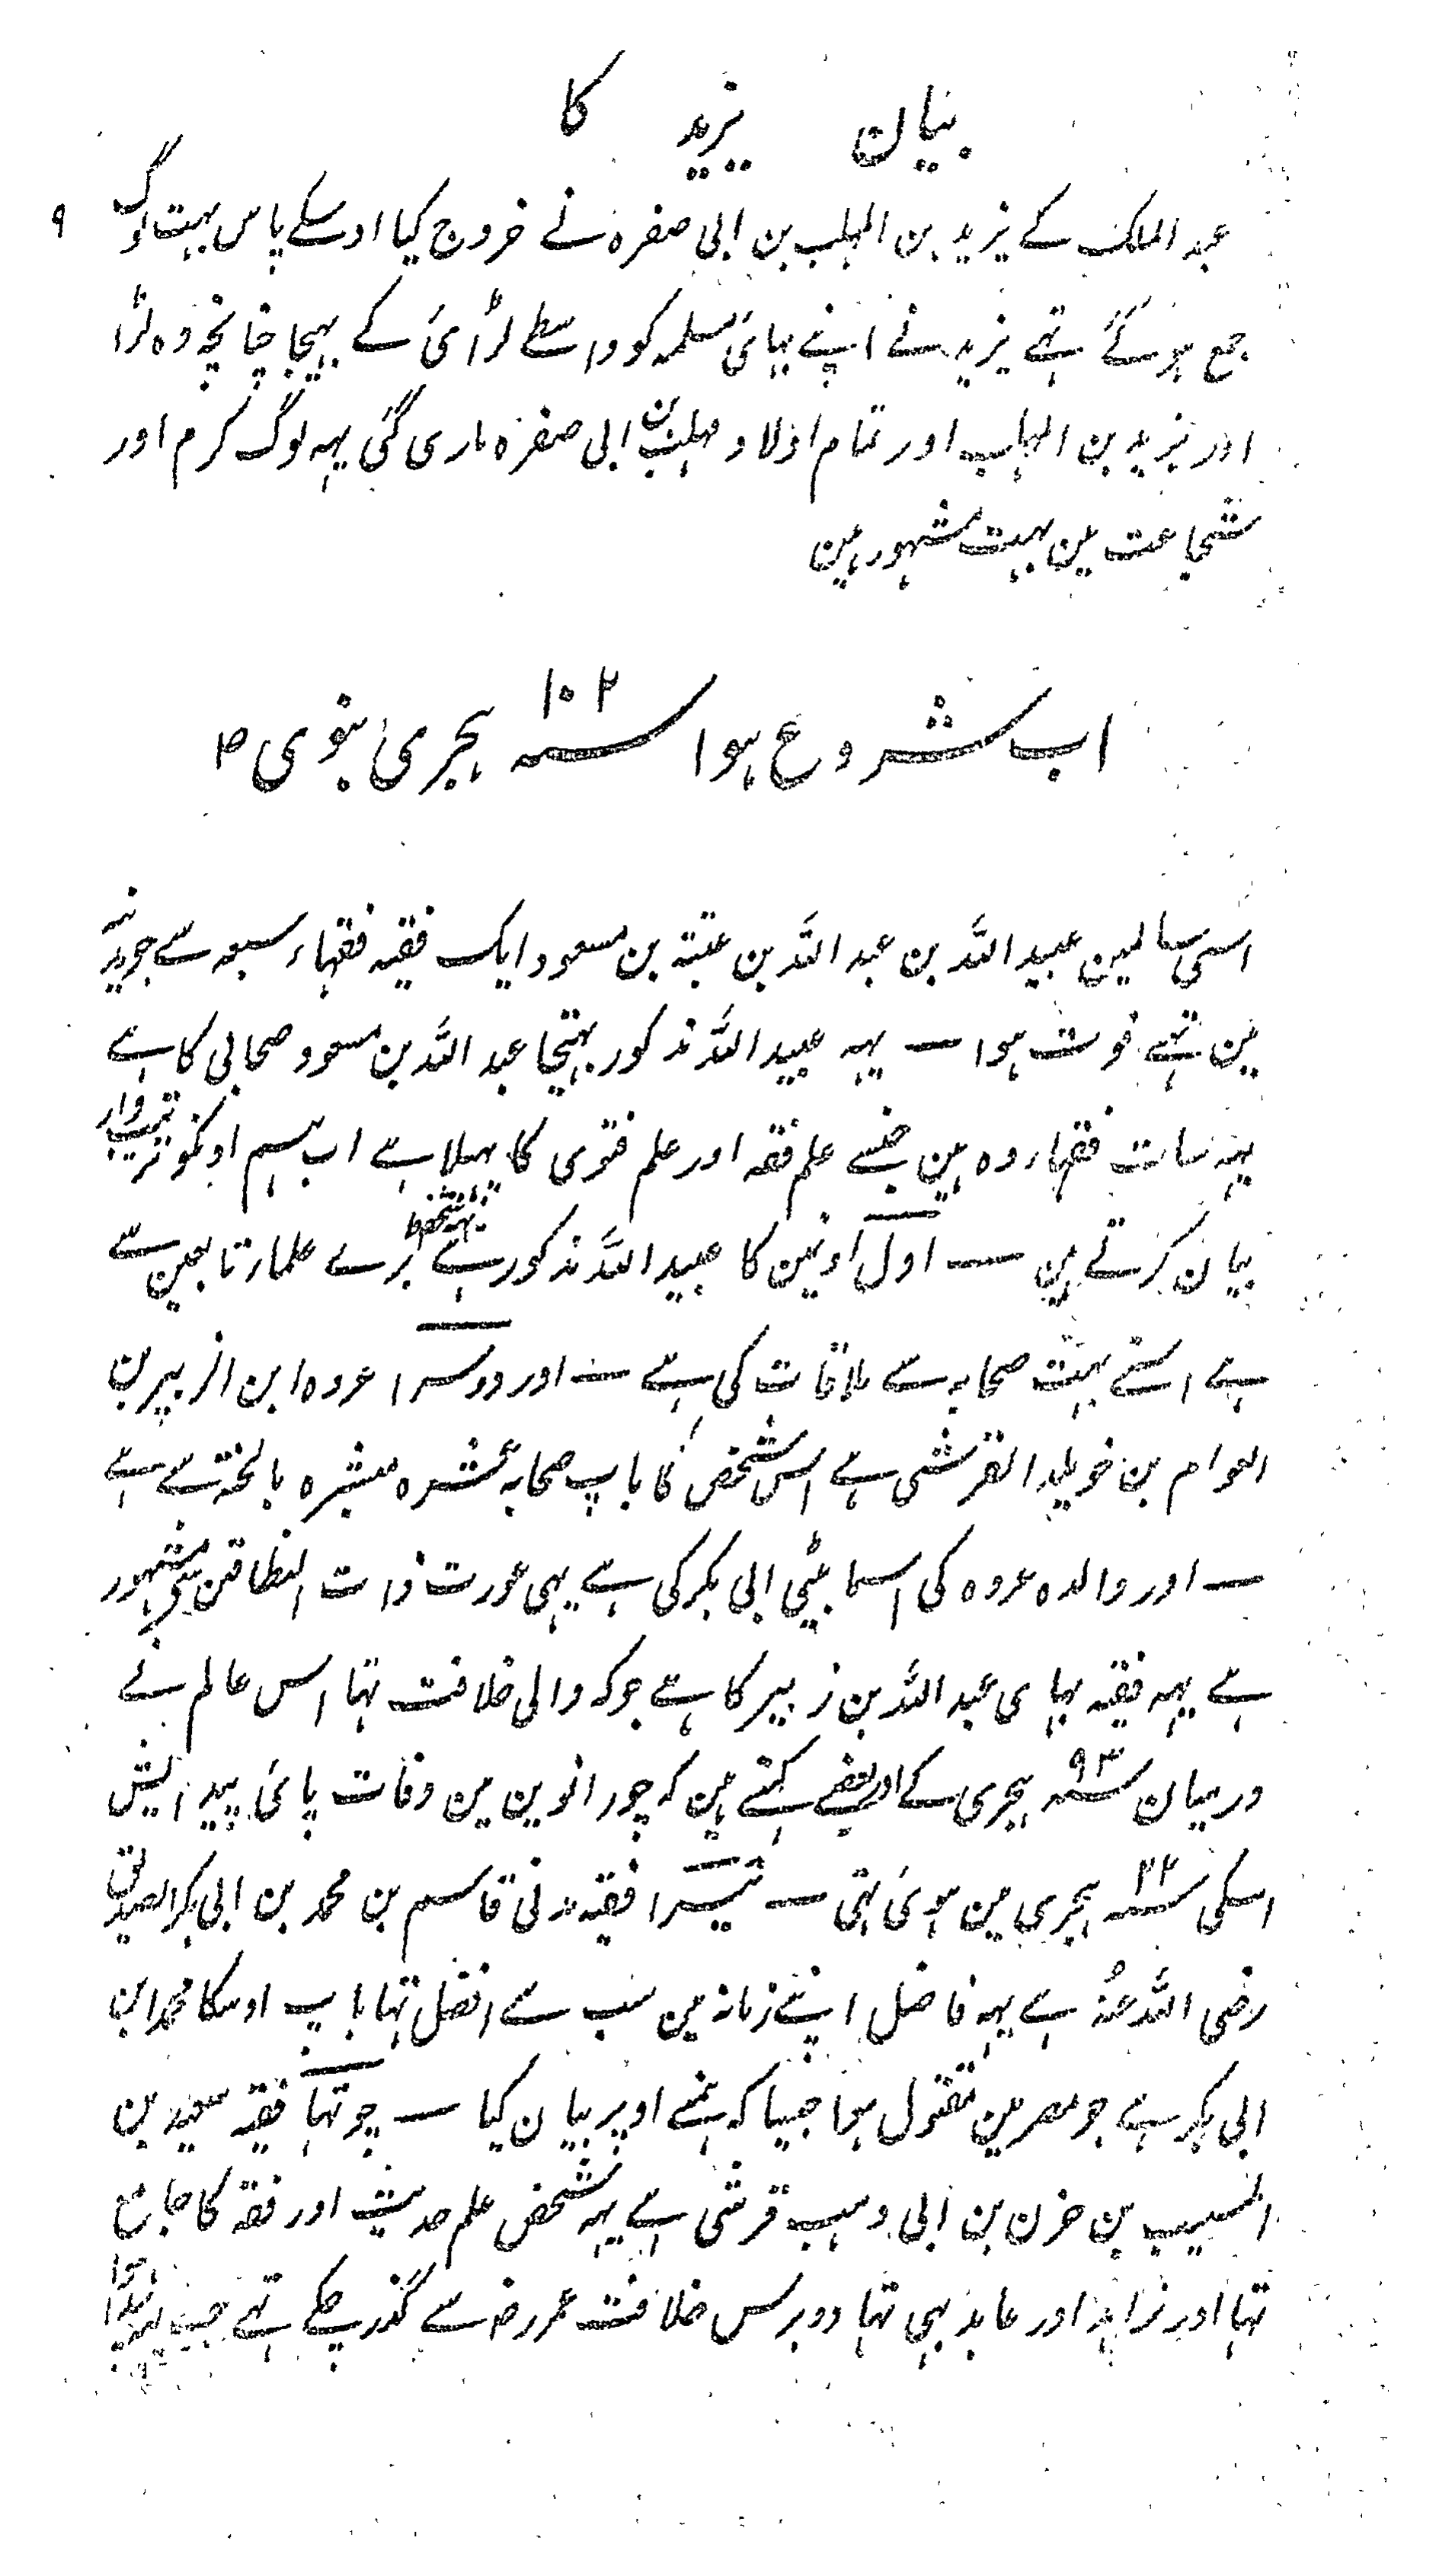 بیان یزید کا
۹
عبد الملک کے یزید بن المہلب بن ابی صفرہ نے خروج کیا اوسکے پاس بہت لوگ
جمع ہو گئے تہے یزید نے اپنے بہائی مسلمہ کو واسطے لڑائی کے بہیجا چنانچہ وہ لڑا
اور یزید بن المہلب اور تمام اولاد مہلب بن ابی صفرہ ماری گئی یہہ لوگ کرم اور
شجاعت مین بہت مشہور ہین
اب شروع ہوا سنہ ۱۰۲ ہجری نبوی ص
اسی سالمین عبید اللہ بن عبد اللہ بن عتبۃ بن مسعود ایک فقیہ فقہاء سبعہ سے جو مدینہ
مین تہے فوت ہوا — یہہ عبید اللہ مذکور بہتیجا عبد اللہ بن مسعود صحابی کا ہے
یہہ سات فقہاء وہ ہین جنسے علم فقہ اور علم فتوی کا پہیلا ہے اب ہم اونکو ترتیب وار
بیان کرتے ہین — اول اونہین کا عبید اللہ مذکور ہے یہہ شخص بڑے علماء تابعین سے
ہے اسنے بہت صحابہ سے ملاقات کی ہے — اور دوسرا عروہ ابن الزبیر بن
العوام بن خویلد القرشی ہے اس شخص کا باپ صحابہ عشرہ مبشرہ بالجنۃ سے ہے
— اور والدہ عروہ کی اسما بیٹی ابی بکر کی ہے یہی عورت ذات النطاقین کی مشہور
ہے یہہ فقیہ بہای عبد اللہ بن زبیر کا ہے جو کہ والی خلافت تہا اس عالم نے
درمیان سنہ ۹۳ ہجری کے اور بعضے کہتے ہین کہ چورانوین مین وفات پائی پیدایش
اسکی سنہ ۲۲ ہجری مین ہوئی تہی — تیسرا فقیہ مدنی قاسم بن محمد بن ابی بکر الصدیق
رضی اللہ عنہ ہے یہہ فاضل اپنے زمانہ مین سب سے افضل تہا باپ اوسکا محمد ابن
ابی بکر ہے جو مصر مین مقتول ہوا جیسا کہ ہمنے اوپر بیان کیا — چوتہا فقیہ سعید بن
المسیب بن حزن بن ابی وہب قرشی ہے یہہ شخص علم حدیث اور فقہ کا جامع
تہا اور زاہد اور عابد بہی تہا دو برس خلافت عمر رض سے گذر چکے تہے جب یہہ پیدا ہوا